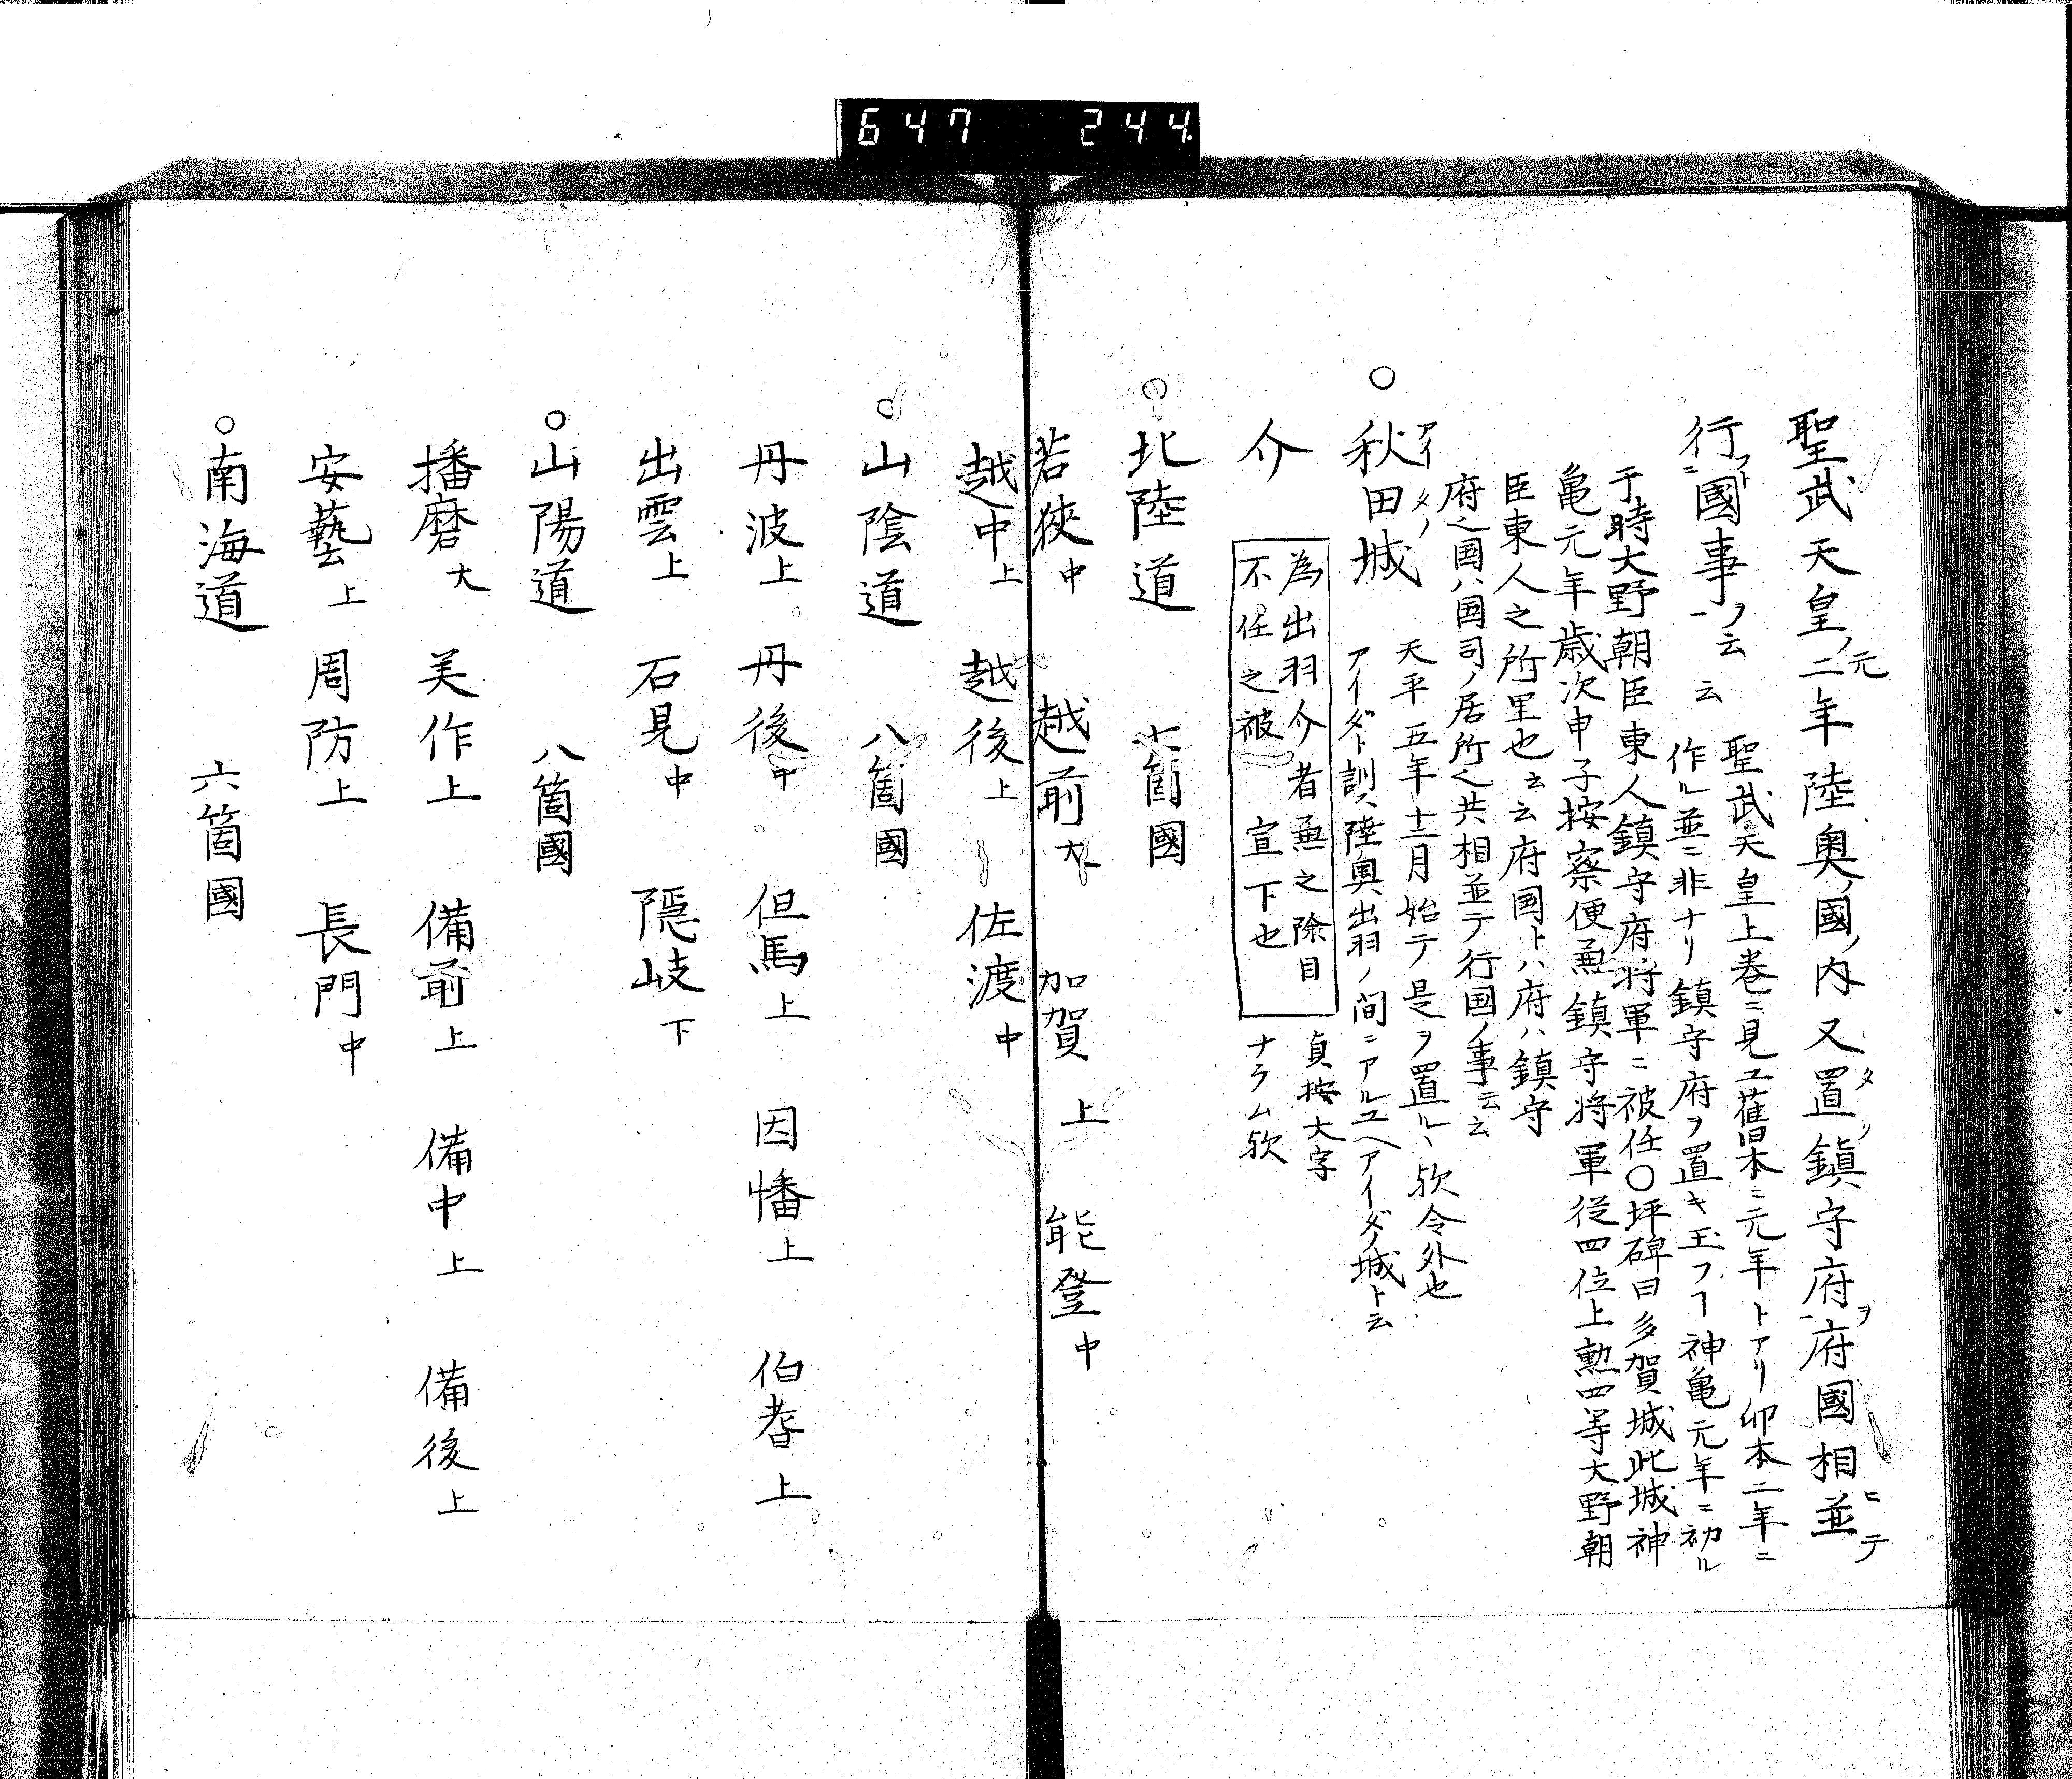 647 244
聖武天皇ノ二元年陸奥ノ國ノ内又置タリ鎮守府ヲ一府國相並ヒテ
行フト二國事ヲ一云云
聖武天皇上巻ニ見ユ舊本ニ元年トアリ卯本二年ニ
作ル並ニ非ナリ鎮守府ヲ置キ玉フヿ神亀元年ニ初ル
于時大野朝臣東人鎮守府将軍ニ被任○坪碑曰多賀城此城神
亀元年歳次申子按察使兼鎮守将軍従四位上勲四等大野朝
臣東人之所里也云云府国トハ府ハ鎮守
府之国ハ国司ノ居所く共相並テ行国ノ事云云
○秋田城アイタノ
天平五年十二月始テ是ヲ置ル、欤令外也
アイダト訓ス陸奥出羽ノ間ニアルユヘアイダノ城ト云
介
為出羽介者兼之除目
不任之被 宣下也
貞按大字
ナラム欤
○北陸道 七箇國
若狭中 越前大 加賀上 能登中
越中上 越後上 佐渡中
○山陰道 八箇國
丹波上 丹後中 但馬上 因幡上 伯耆上
出雲上 石見中 隠岐下
○山陽道 八箇國
播磨大 美作上 備前上 備中上 備後上
安藝上 周防上 長門中
○南海道 六箇國